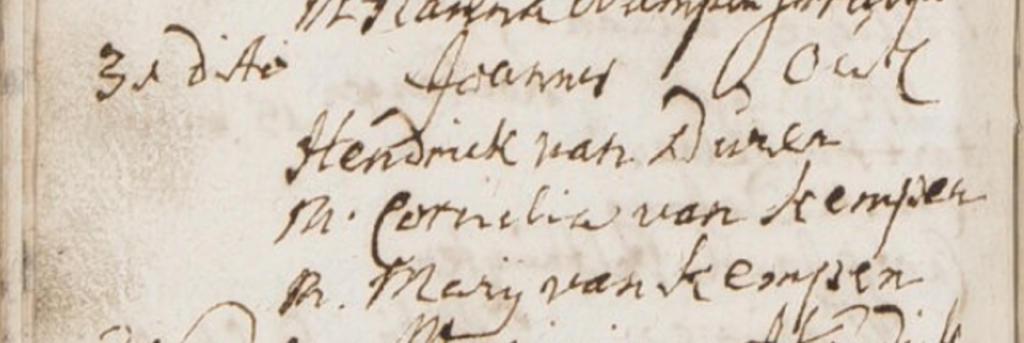 31 ditto Joannes
Hendrick van Duren
M. Cornelia van Kempen
M. Marij van Kempen